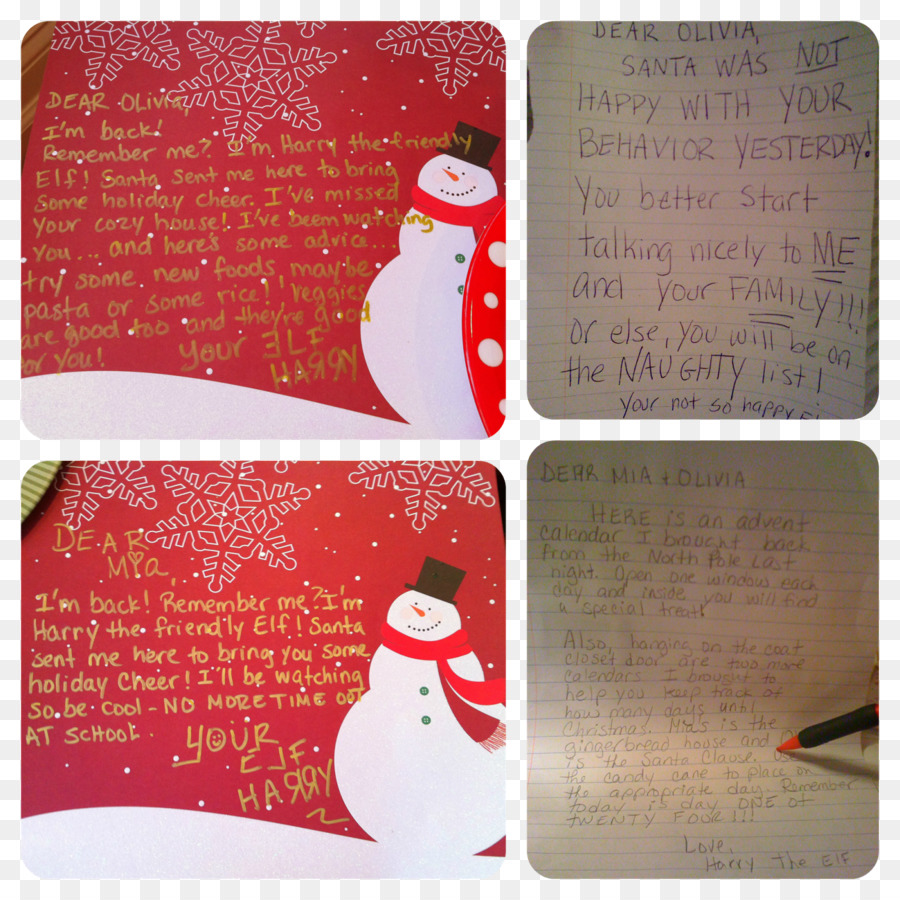 DEAR OLIVIA,
I'm back!
Remember me? I'm Harry the friendly
Elf! Santa sent me here to bring
some holiday cheer. I've missed
your cozy house! I've been watching
you... and here's some advice...
try some new foods, maybe
pasta or some rice! Veggies
are good too and they're good
for you!
Your ELF
HARRY
DEAR OLIVIA,
SANTA WAS NOT
HAPPY WITH YOUR
BEHAVIOR YESTERDAY!
You better start
talking nicely to ME
and your FAMILY!!!
or else, you will be on
the NAUGHTY list!
Your not so happy
DEAR
Mia,
I'm back! Remember me? I'm
Harry the friendly Elf! Santa
sent me here to bring you some
holiday cheer! I'll be watching
so be cool - NO MORE TIME OUT
AT SCHOOL.
YOUR
ELF
HARRY
DEAR MIA + OLIVIA
HERE is an advent
calendar I brought back
from the North Pole last
night. Open one window each
day and inside you will find
a special treat!
Also, hanging on the coat
closet door are two more
calendars I brought to
help you keep track of
how many days until
Christmas. Mia's is the
gingerbread house and
is the Santa Clause. Use
the candy cane to place on
the appropriate day. Remember
today is day ONE of
TWENTY FOUR!!!
Love,
Harry The Elf